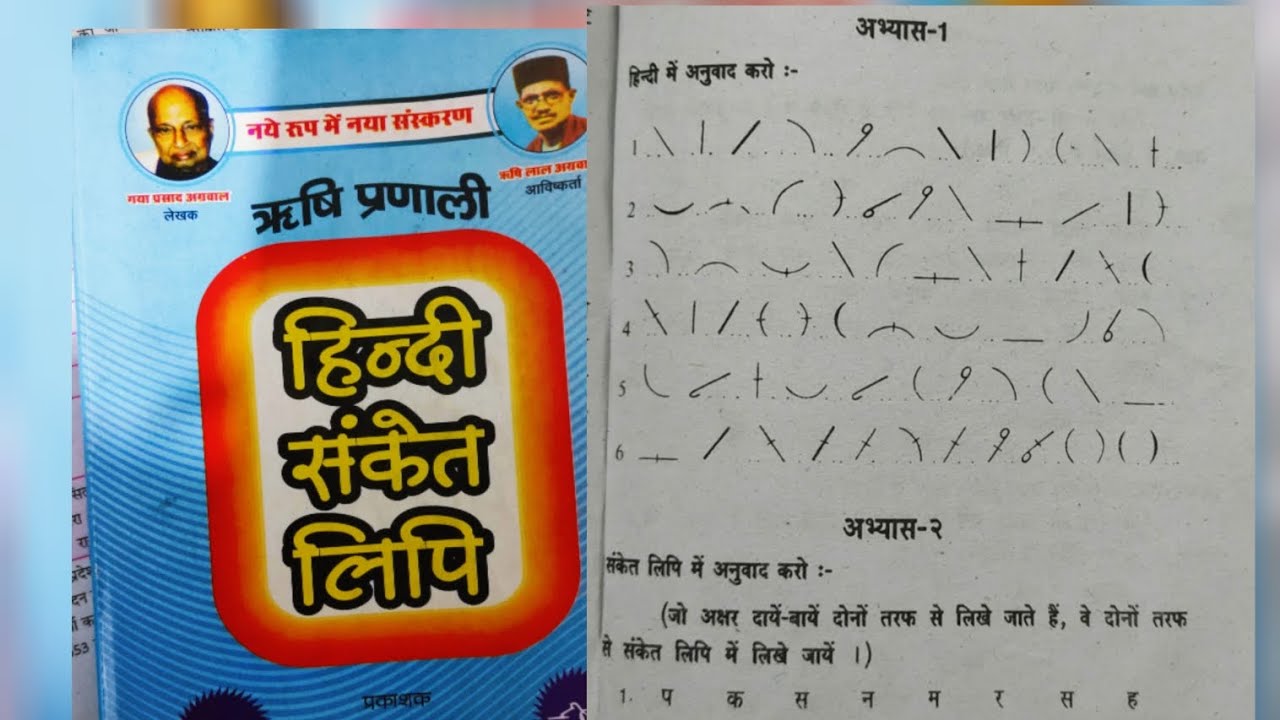 नये रूप में नया संस्करण
गया प्रसाद अग्रवाल
लेखक
ऋषि लाल
आविष्कर्ता
ऋषि प्रणाली
हिन्दी
संकेत
लिपि
प्रकाशक
अभ्यास-1
हिन्दी में अनुवाद करो :-
1
2
3
4
5
6
अभ्यास-२
संकेत लिपि में अनुवाद करो :-
(जो अक्षर दायें-बायें दोनों तरफ से लिखे जाते हैं, वे दोनों तरफ
से संकेत लिपि में लिखे जायें ।)
1. प क स न म र स ह